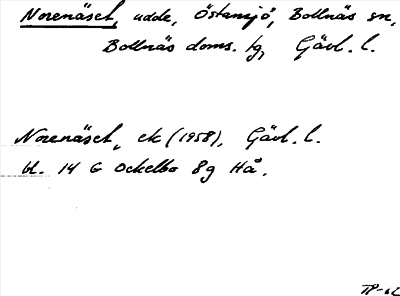 Norenäset, udde, Östansjö, Bollnäs sn,
Bollnäs doms. tg, Gävl. l.
Norenäset, ek (1958), Gävl. l.
bl. 14 G Ockelbo 8g Hå.
TP-62